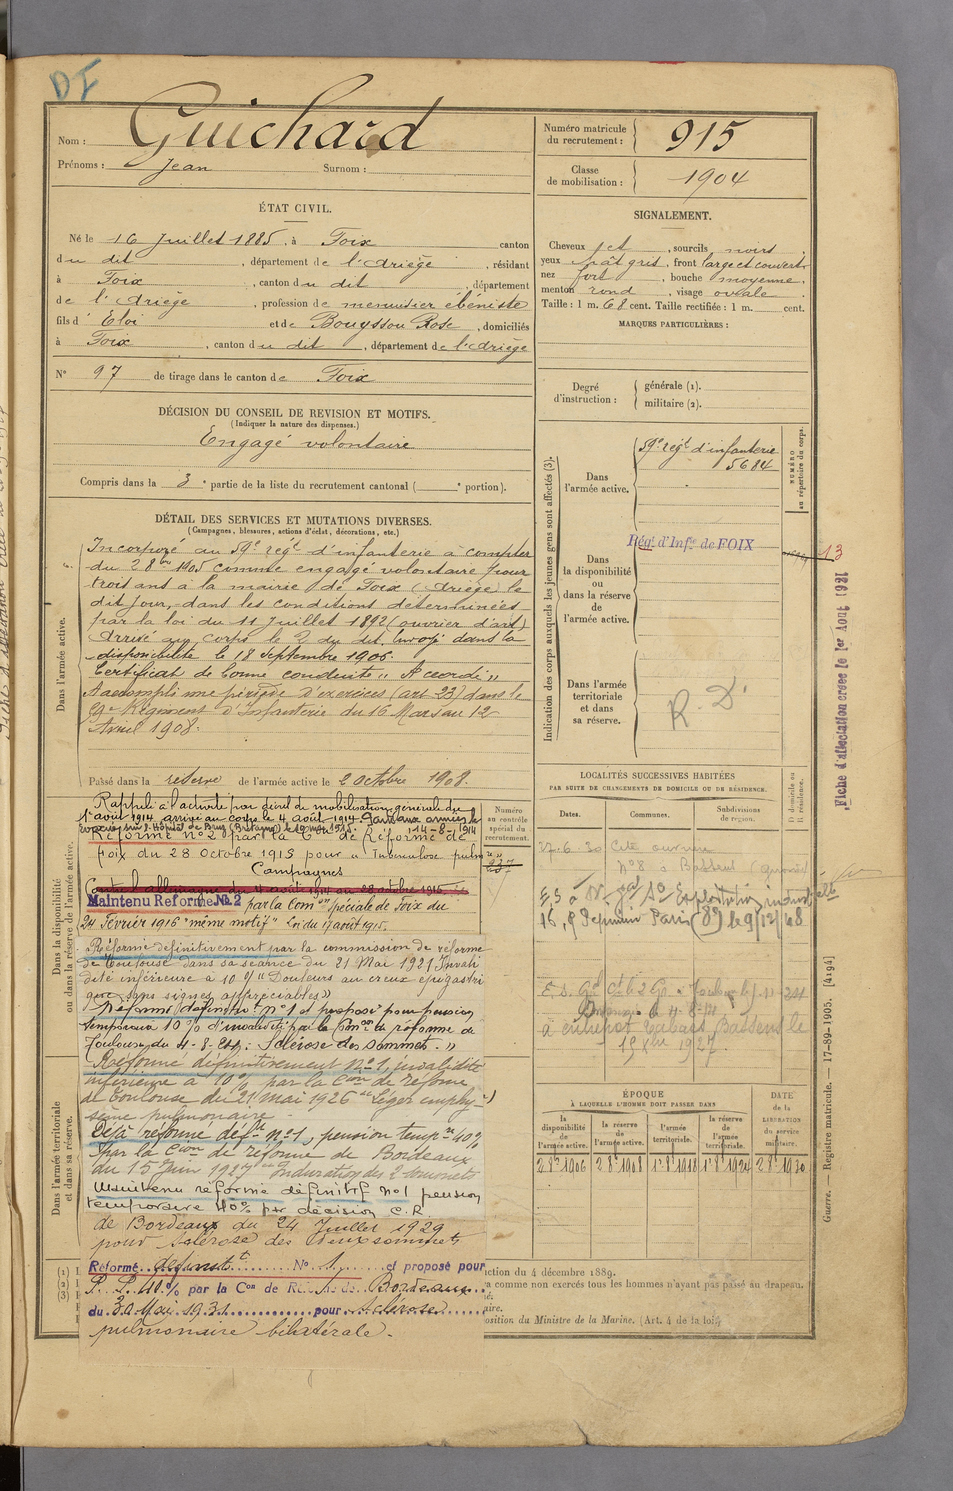 DI
Nom : Guichard
Prénoms : Jean Surnom :
ÉTAT CIVIL.
Né le 16 Juillet 1885, à Foix canton
du dit, département de l'Ariège, résidant
à Foix, canton du dit, département
de l'Ariège, profession de menuisier ébéniste
fils d'Eloi et de Bouyssou Rose, domiciliés
à Foix, canton du dit, département de l'Ariège
N° 97 de tirage dans le canton de Foix
DÉCISION DU CONSEIL DE REVISION ET MOTIFS.
(Indiquer la nature des dispenses.)
Engagé volontaire
Compris dans la 3e partie de la liste du recrutement cantonal ( e portion).
DÉTAIL DES SERVICES ET MUTATIONS DIVERSES.
(Campagnes, blessures, actions d'éclat, décorations, etc.)
Dans l'armée active.
Incorporé au 59e régt d'infanterie à compter
du 2 8bre 1905 comme engagé volontaire pour
trois ans à la mairie de Foix (Ariège) le
dit jour, dans les conditions déterminées
par la loi du 11 Juillet 1892 (ouvrier d'art)
Arrivé au corps le 2 du dit
dans la
disponibilité le 18 Septembre 1906.
Certificat de bonne conduite "Accordé"
A accompli une période d'exercices (art 23) dans le
59e Régiment d'Infanterie du 16 Mars au 12
Avril 1908.
Passé dans la réserve de l'armée active le 2 octobre 1908.
Dans la disponibilité
ou dans la réserve de l'armée active.
Rappelé à l'activité par décret de mobilisation générale du
1er août 1914 arrivé au corps le 4 août 1914
14-8-1914
Réformé n°2 par la Con de Réforme de
Foix du 28 Octobre 1915 pour "Tuberculose pulmre"
Campagnes
Contre l'allemagne du 4 août 1914 au 28 octobre 1915
Maintenu Réformé No. 2 par la Comon spéciale de Foix du
24 Février 1916 "même motif" Loi du 17 août 1915.
Réformé définitivement par la commission de réforme
de Toulouse dans sa séance du 21 Mai 1921 Invali
dité inférieure à 10 % "Douleurs au creux épigastri
que sans signes appréciables"
Réformé définitivt n°1 et proposé pour pension
temporaire 10% d'invalidité par la Comon de réforme de
Toulouse du 4-8-24 : "Sclérose des sommets."
Réformé définitivement n°1, invalidité
inférieure à 10% par la Con de réforme
de Toulouse du 21 mai 1926 "Léger emphy-
sème pulmonaire"
Dans l'armée territoriale
et dans sa réserve.
Déjà réformé défvt n°1, pension tempre 40%
par la Con de réforme de Bordeaux
du 15 Juin 1927 "Induration des 2 sommets
Maintenu réformé définitif no1 pension
temporaire 40% par décision C.R.
de Bordeaux du 24 Juillet 1929
pour sclérose des deux sommets
Réformé définitt N° 1 et proposé pour
P. P. 40% par la Con de Ré de Bordeaux
du 30 Mai 1931 pour Sclérose
pulmonaire bilatérale.
Numéro
au contrôle
spécial du
recrutement.
237
Numéro matricule
du recrutement : 915
Classe
de mobilisation : 1904
SIGNALEMENT.
Cheveux jet, sourcils noirs
yeux chât gris, front large et couvert
nez fort, bouche moyenne,
menton rond, visage ovale.
Taille : 1 m. 68 cent. Taille rectifiée : 1 m. cent.
MARQUES PARTICULIÈRES :
Degré
d'instruction :
générale (1).
militaire (2).
Indication des corps auxquels les jeunes gens sont affectés (3).
Dans
l'armée active.
59e régt d'infanterie
5684
NUMÉRO
au répertoire du corps.
Dans
la disponibilité
ou
dans la réserve
de
l'armée active.
Régt d'Infie de FOIX
13
Dans l'armée
territoriale
et dans
sa réserve.
R. D.
Fiche d'affectation créée le 1er Août 1931
LOCALITÉS SUCCESSIVES HABITÉES
PAR SUITE DE CHANGEMENTS DE DOMICILE OU DE RÉSIDENCE.
Dates. Communes. Subdivisions
de région.
D domicile ou
R résidence.
27.6.30 Cité ouvrière
n°8 à Bassens (Gironde)
à entrepôt tabacs Bassens le
1927
ÉPOQUE
À LAQUELLE L'HOMME DOIT PASSER DANS
la
disponibilité
de
l'armée active.
la réserve
de
l'armée active.
l'armée
territoriale.
la réserve
de
l'armée
territoriale.
DATE
de la
LIBÉRATION
du service
militaire.
2 8bre 1906 2 8bre 1908 1er 8bre 1918 1er 8bre 1924 2 8bre 1930
(1) I
(2) I
(3) I
ction du 4 décembre 1889.
a comme non exercés tous les hommes n'ayant pas passé au drapeau.
é.
aire.
osition du Ministre de la Marine. (Art. 4 de la loi)
Guerre. — Registre matricule. — 17-89-1905. [4194]